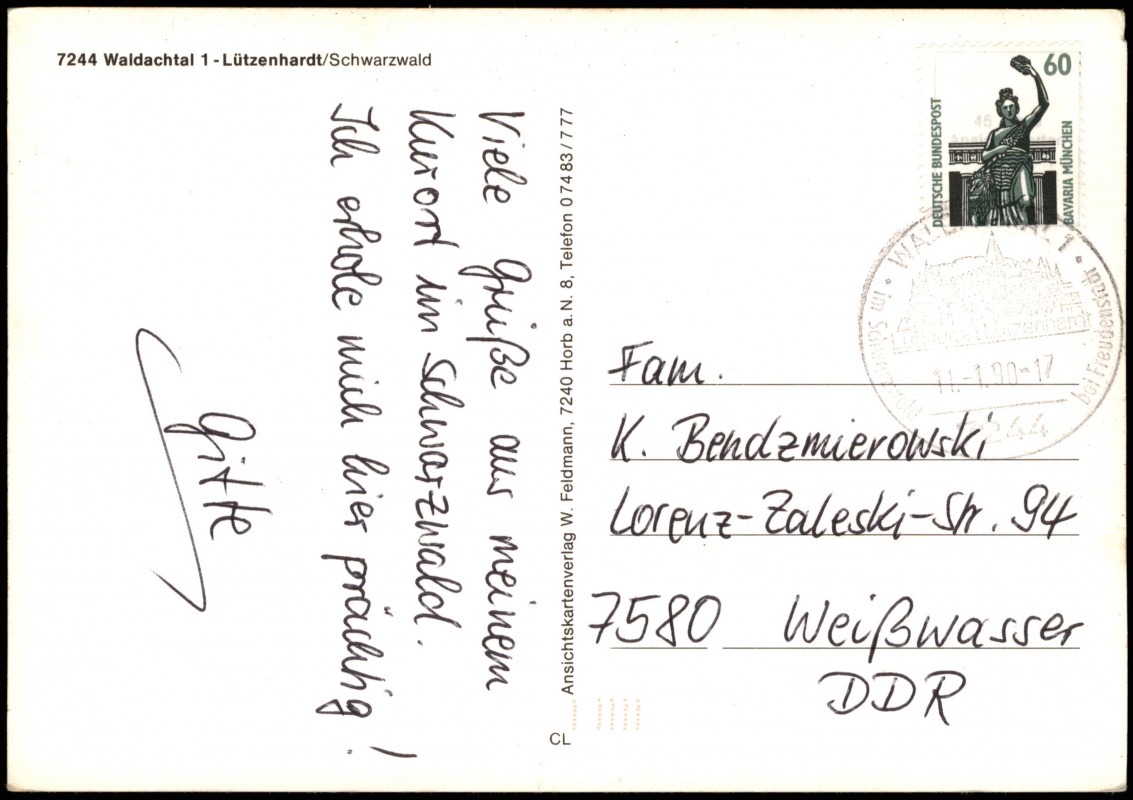 7244 Waldachtal 1 - Lützenhardt/Schwarzwald
Viele Grüße aus meinem
Kurort im Schwarzwald.
Ich erhole mich hier prächtig!
Gitte
Ansichtskartenverlag W. Feldmann, 7240 Horb a. N. 8, Telefon 0 74 83 / 7 77
CL
60
DEUTSCHE BUNDESPOST
BAVARIA MÜNCHEN
WALDACHTAL 1
im Schwarzwald
bei Freudenstadt
Lützenhardt
11.-1.90-17
7244
Fam.
K. Bendzmierowski
Lorenz-Zaleski-Str. 94
7580 Weißwasser
DDR